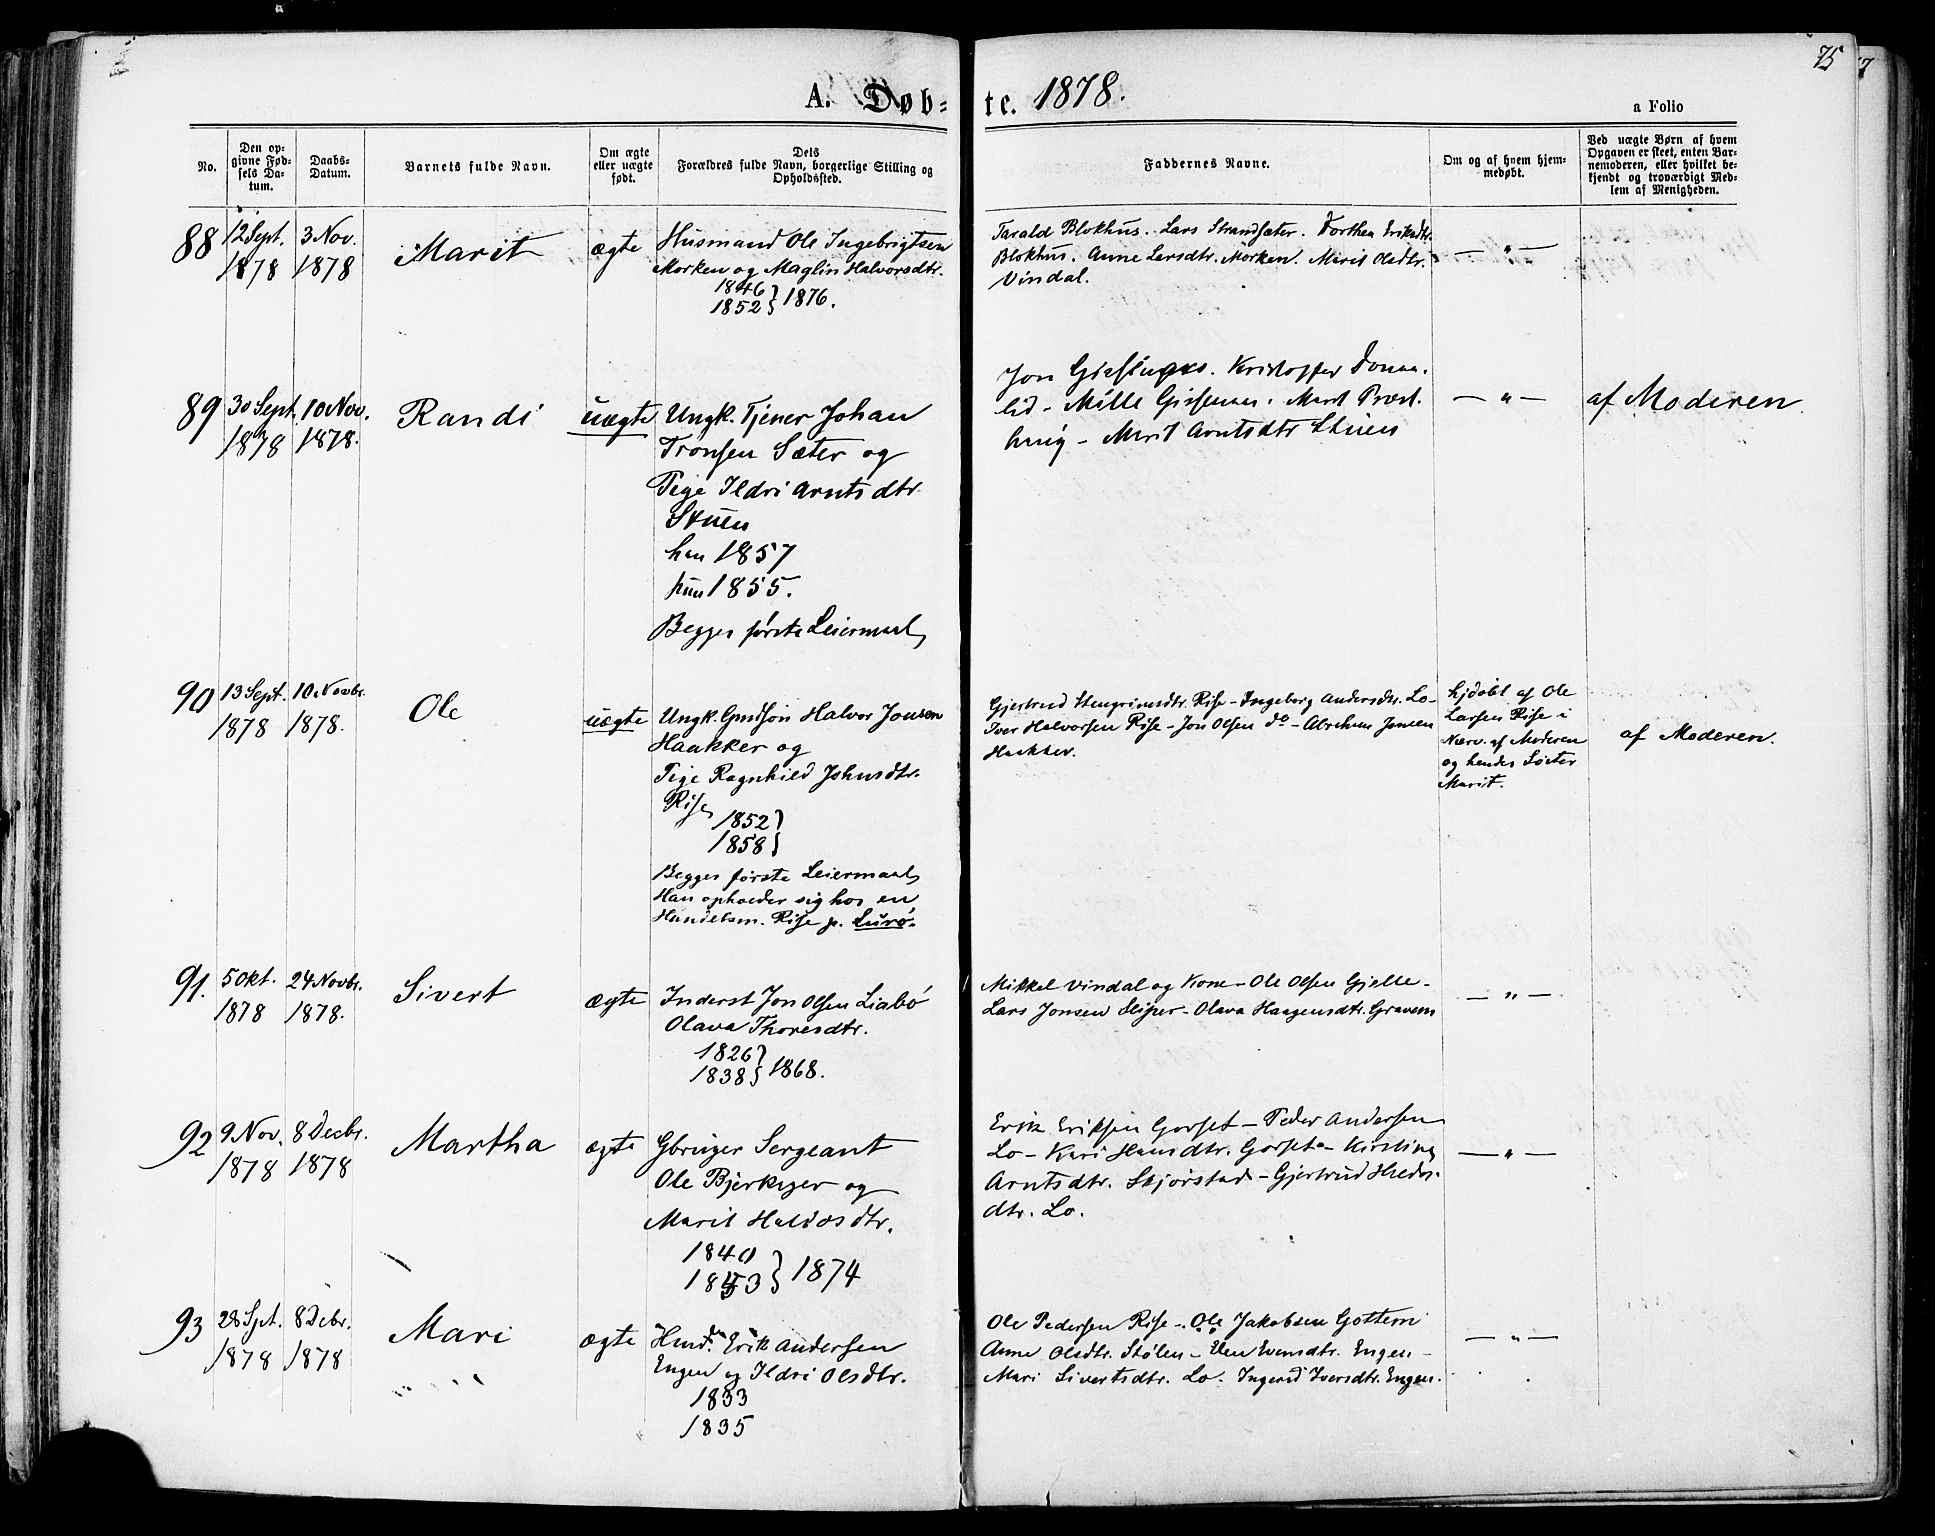 75
A. Døb- te. 1878.
a Folio
No.
Den op-
givne Fød-
sels Da-
tum.
Daabs-
Datum.
Barnets fulde Navn.
Om ægte
eller uægte
født.
Dels
Forældres fulde Navn, borgerlige Stilling og
Opholdssted.
Faddernes Navne.
Om og af hvem hjem-
medøbt.
Ved uægte Børn af hvem
Opgaven er skeet, enten Bar-
nemoderen, eller hvilket be-
kjendt og troværdigt Med-
lem af Menigheden.
88
12 Sept.
1878
3 Nov.
1878
Marit
ægte
Husmand Ole Ingebrigtsen
Morken og Maglin Halvorsdtr.
1846
1852 } 1876.
Tarald Blokhus. Lars Strandsæter. Dorthea Eriksdtr.
Blokhus. Anne Larsdtr. Morken. Marit Olsdtr.
Vindal.
— " —
89
30 Sept.
1878
10 Nov.
1878.
Randi
uægte
Ungk. Tjener Johan
Tronsen Sæter og
Pige Ildri Arntsdtr.
Stuen
han 1857
hun 1855.
Begges første Leiermaal
Jon . Kristoffer Donna-
lid - Mille . Marit
- Marit Arntsdtr Stuen
— " —
af Moderen
90
13 Sept.
1878
10 Novbr.
1878.
Ole
uægte
Ungk. Gmdsøn Halvor Jonsen
Haakker og
Pige Ragnhild Johnsdtr.
Rise
1852 }
1858 }
Begges første Leiermaal
Han opholder sig hos en
Handelsm. Rise p. Lurø.
Gjertrud Stengrimsdtr. Rise - Ingeborg Andersdtr. Lo -
Iver Halvorsen Rise - Jon Olsen do - Abraham Jonsen
Haakker.
hjdøbt af Ole
Larsen Rise i
Nærv. af Moderen
og hendes Søster
Marit.
af Moderen.
91.
5 Okt.
1878
24 Novbr.
1878.
Sivert
ægte
Inderst Jon Olsen Liabø
Olava Thoresdtr.
1826
1838 } 1868.
Mikkel Vindal og Kone - Ole Olsen Gjelle -
Lars Jonsen Sliper - Olava Haagensdtr. Gravem
— " —
92
9 Nov.
1878
8 Decbr.
1878
Martha
ægte
Gbruger Sergeant
Ole Bjerkager og
Marit Halvorsdtr.
1840
1853 } 1874
Erik Eriksen Gorset - Peder Andersen
Lo - Kari Hansdtr. Gorset - Kirstine
Arntsdtr. Skjørstad - Gjertrud
dtr. Lo.
— " —
93
28 Spt.
1878
8 Debr.
1878
Mari
ægte
Husmd. Erik Andersen
Engen og Ildri Olsdtr.
1833
1835
Ole Pedersen Rise - Ole Jakobsen Gottem
Anne Olsdtr. Stølen - Elen Evensdtr. Engen -
Mari Sivertsdtr. Lo. Ingerid Iversdtr. Engen.
— " —